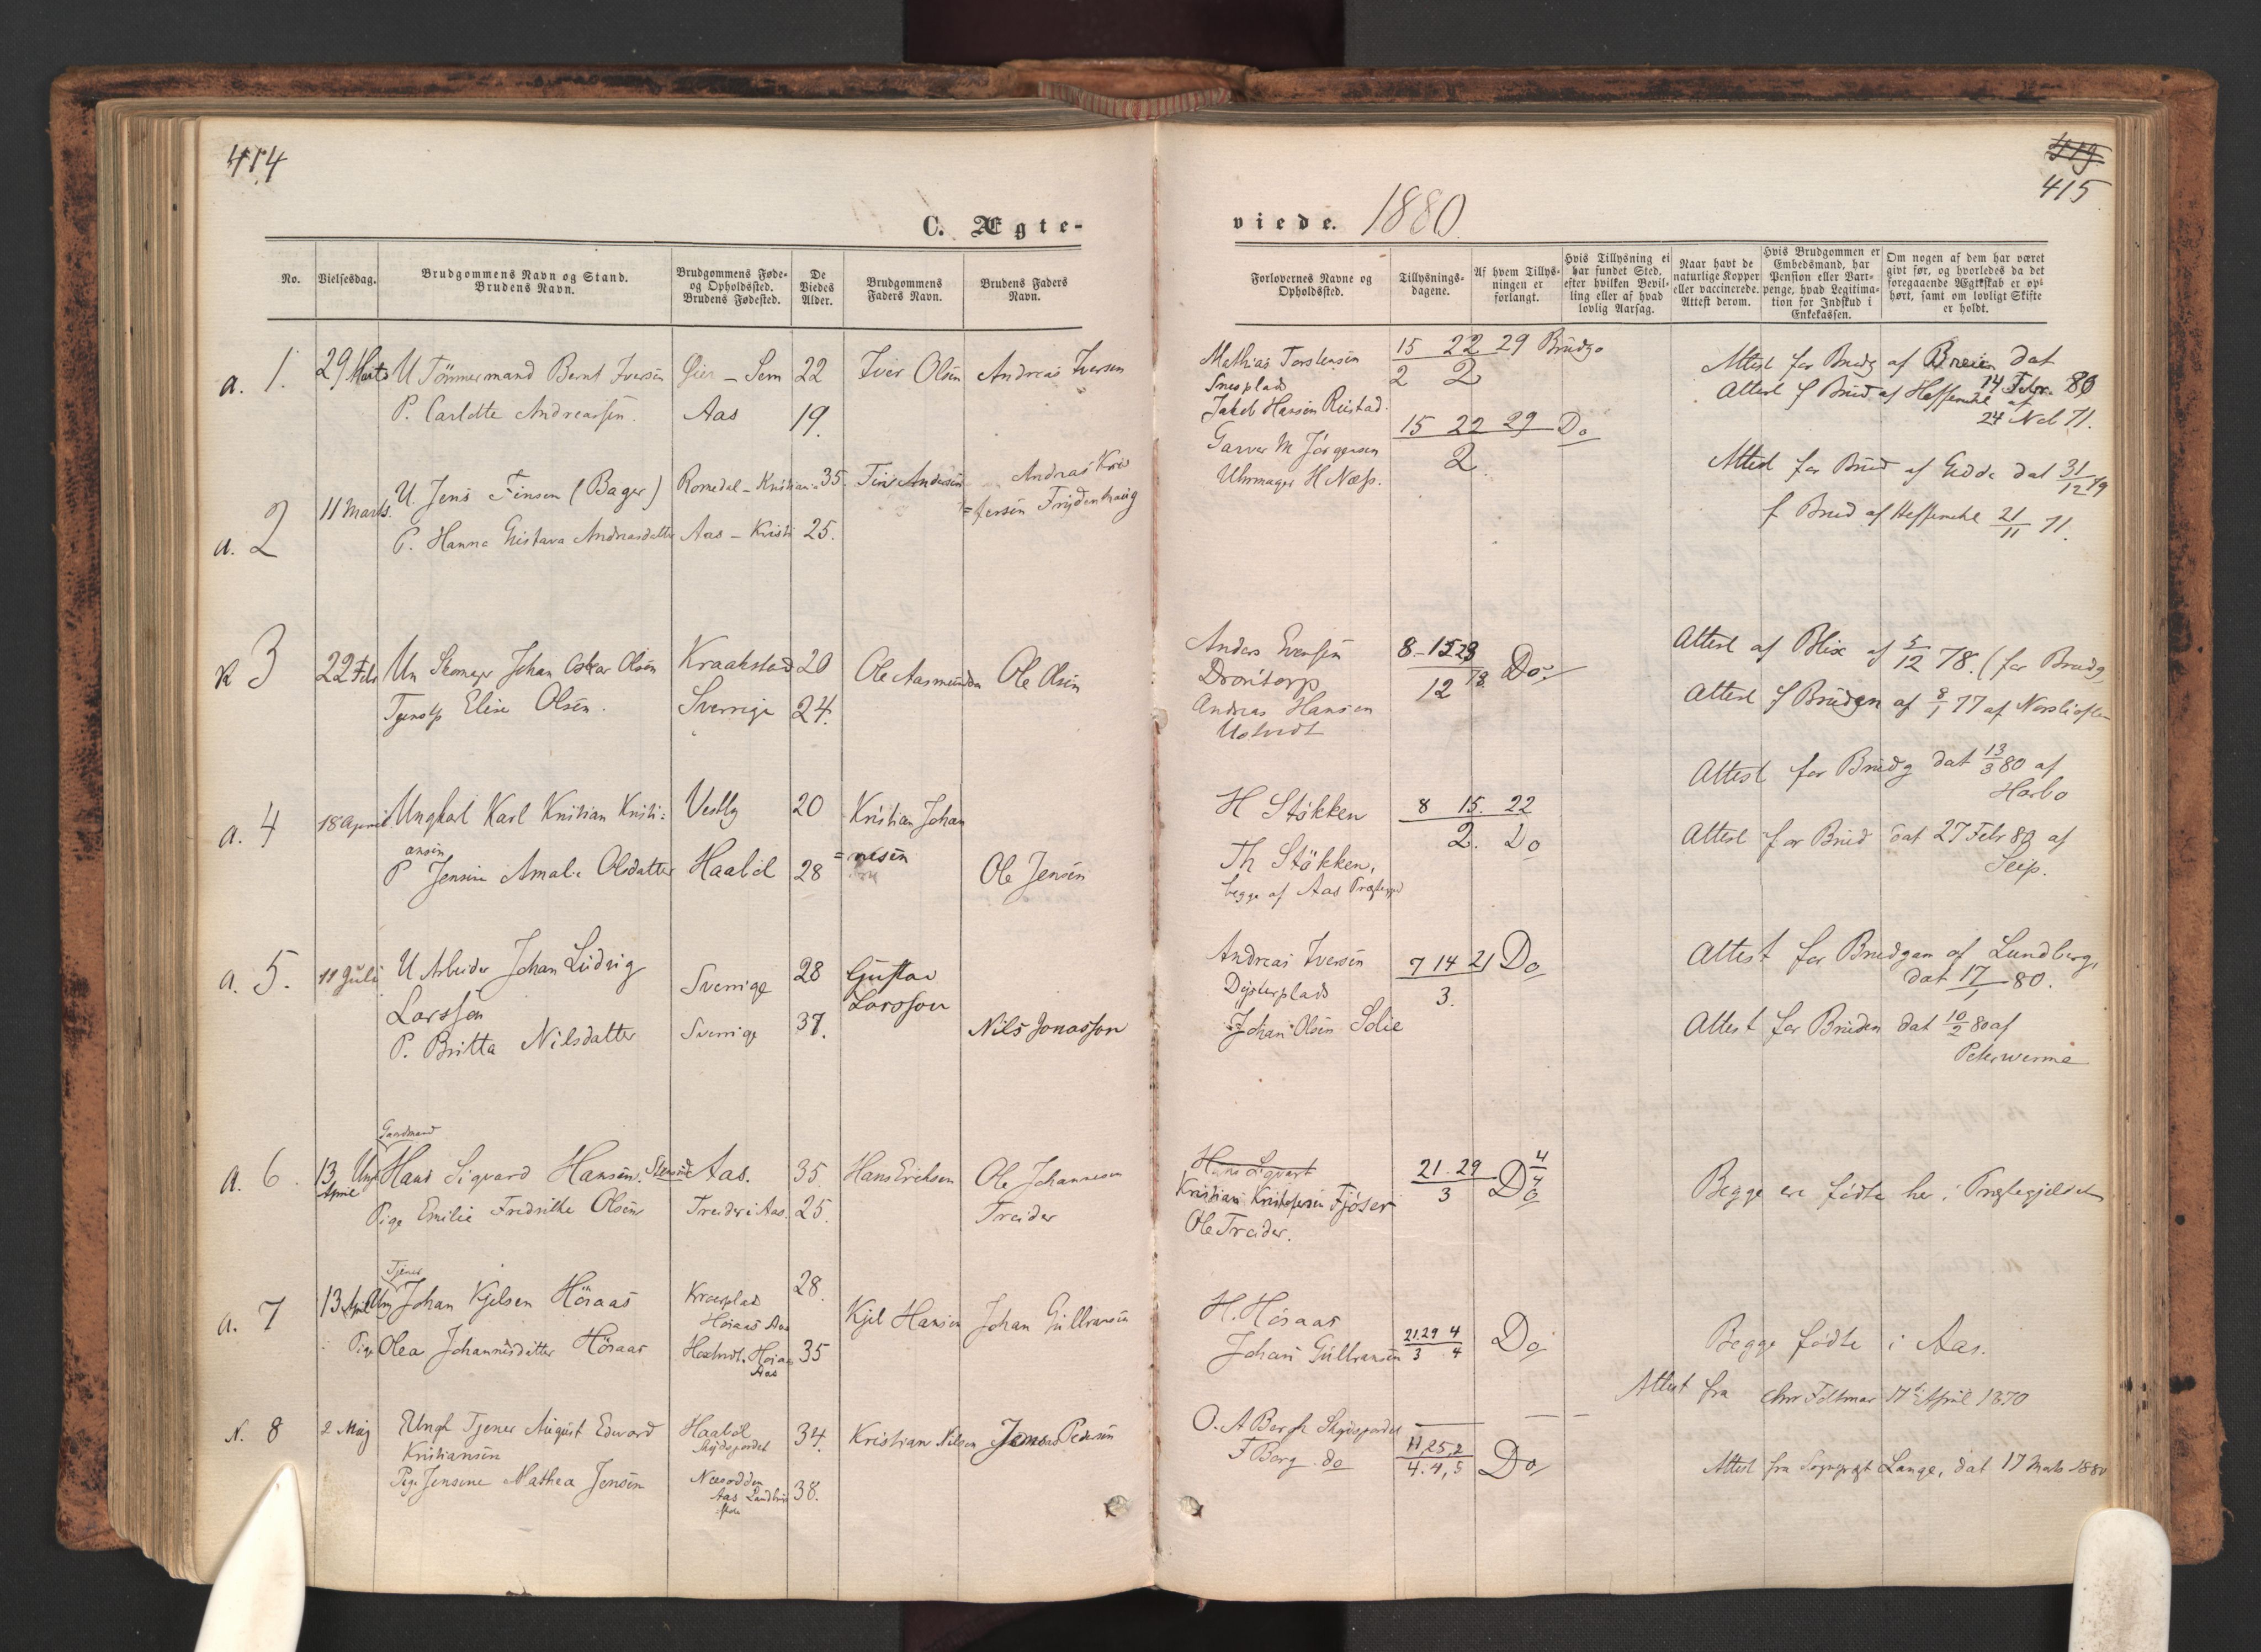 414
415
C. Ægte-
viede. 1880.
No.
Vielsesdag.
Brudgommens Navn og Stand.
Brudens Navn.
Brudgommens Føde-
og Opholdssted.
Brudens Fødested.
De
Viedes
Alder.
Brudgommens
Faders Navn.
Brudens Faders
Navn.
Forlovernes Navne og
Opholdssted.
Tillysnings-
dagene.
Af hvem Tillys-
ningen er
forlangt.
Hvis Tillysning ei
har fundet Sted,
efter hvilken Bevil-
ling eller af hvad
lovlig Aarsag.
Naar havt de
naturlige Kopper
eller vaccinerede.
Attest derom.
Hvis Brudgommen er
Embedsmand, har
Pension eller Vart-
penge, hvad Legitima-
tion for Indskud i
Enkekassen.
Om nogen af dem har været
givt før, og hvorledes da det
foregaaende Ægteskab er op-
hørt, samt om lovligt Skifte
er holdt.
a. 1. 29 Marts U Tömmermand Bernt Iversen
P. Carlotte Andreassen.
Øier - Sem
Aas
22
19.
Iver Olsen
Andreas Iversen
Mathias Torstensen
Snesplads
Jakob Hansen Rustad.
15 22 29 Brudg
2 2
Attest for Brudg af Breien dat
14 Febr. 80
Attest f Brud af Heffermehl af
24 Nob 71.
a. 2 11 Marts. U. Jens Finsen (Bager)
P. Hanna Gustava Andreasdatter
Romedal - Kristiania
Aas - Kristi
35.
25.
Fin Andersen
Andreas Kris
=fersen Frydenhaug
Garver M Jörgensen
Uhrmager H Næss.
15 22 29 Do
2.
Attest for Brud af Gedde dat 31/12 79
f Brud af Heffermehl 21/11 71.
K 3 22 Feb Un Skomager Johan Oskar Olsen
Tjenstp Elise Olsen.
Kraakstad
Sverrige
20
24.
Ole Aasmundsen
Ole Olsen
Anders Evensen
Drontorp
Andreas Hansen
Ustvedt
8-15 23
12
Do.
Attest af Blix af 5/12 78. (for Brudg,
Attest f Bruden af 8/1 77 af
a. 4 18 April. Ungkarl Karl Kristian Kristi=
ansen
P Jensine Amalie Olsdatter
Vestby
Haaböl
20
28
Kristian Johan
=nesen
Ole Jensen
H Stökken
Th Stökken,
begge af Aas Præstegjd
8 15. 22
2. Do
Attest for Brudg dat 13/3 80 af
Harbo
Attest for Brud dat 27 Febr 80 af
Seip.
a. 5. 11 Juli U Arbeider Johan Ludvig
Larssen
P. Britta Nilsdatter
Sverrige
Sverrige
28
37.
Gustav
Larsson
Nils Jonasson
Andreas Iversen
Dysterplads
Johan Olsen Solie
7 14 21 Do
3.
Attest for Brudgom af Lundberg,
dat 17/1 80.
Attest for Bruden dat 10/2 80 af
Peterwerme
a. 6. 13 April Ung Gaardmand
Hans Sigvard Hansen
Pige Emilie Fredrikke Olsen
Aas.
Treider i Aas.
35.
25.
Hans Eriksen
Ole Johannesen
Treider
Hans Sigvart
Kristian Kristofersen Fjöser
Ole Treider.
21. 29 4
3 4
Do
Begge ere födte her i Præstegjeldet
a. 7 13 April Ung Tjener
Johan Kjelsen Höiaas
Pige Olea Johannesdatter Höiaas
Kroerplads
Höiaas Aas
Höiaas
Aas
28.
35
Kjel Hansen
Johan Gulbransen
H. Höiaas
Johan Gulbransen
21. 29 4
3 4
Do
Begge födte i Aas.
N. 8 2 Maj Ungk Tjener August Edvard
Kristiansen
Pige Jensine Mathea Jensen
Haaböl
Skydsjordet
Næsodden
Aas Landbrugs
skole
34.
38.
Kristian Nilsen
Jens Pedersen
O. A Bergh Skydsjordet
F Berg do
11, 25, 2
4. 4, 5
Do
Attest fra Chr Feltmar 17 April 1870
Attest fra Sognepræst Lange, dat 17 Marts 1880